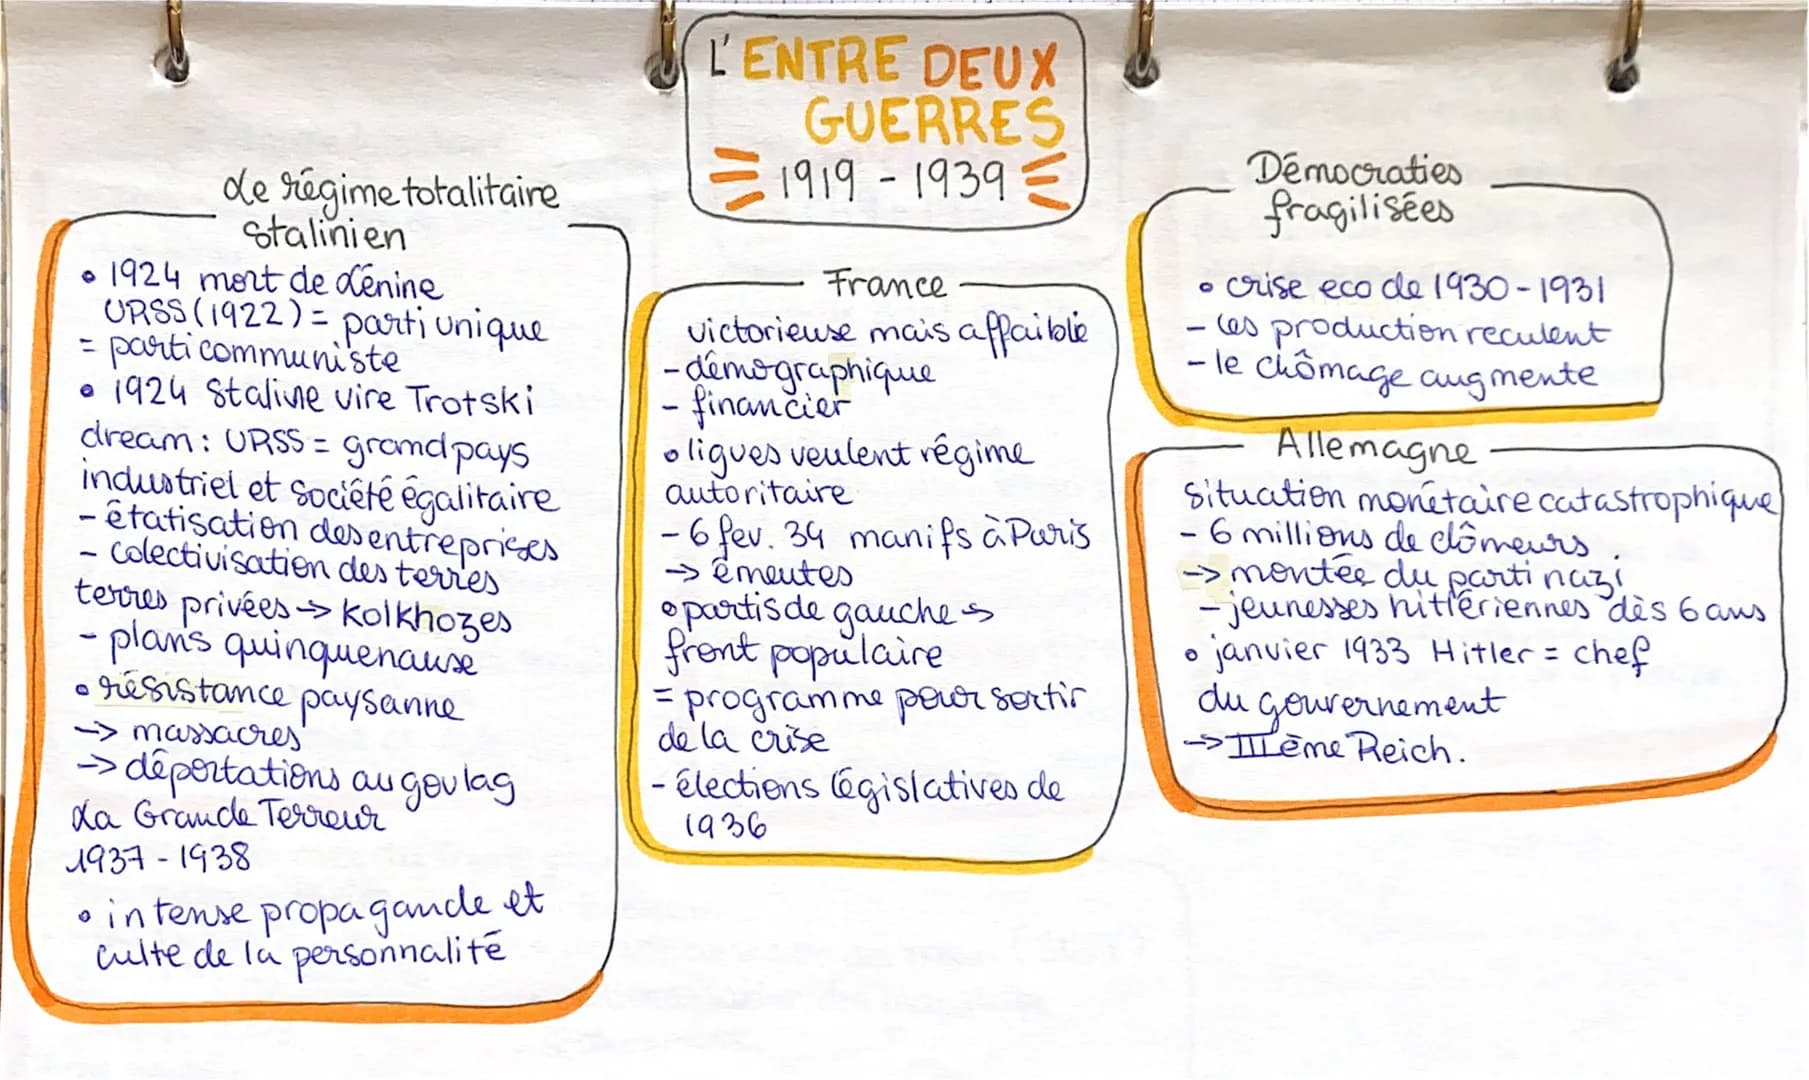 L'ENTRE DEUX
GUERRES
1919 - 1939
Le régime totalitaire
Stalinien
• 1924 mort de Lénine
URSS (1922) = parti unique
= parti communiste
• 1924 Staline vire Trotski
dream : URSS = grand pays
industriel et société égalitaire
- étatisation des entreprises
- colectivisation des terres
terres privées → kolkhozes
- plans quinquenause
• résistance paysanne
→ massacres
→ déportations au goulag
La Grande Terreur
1937 - 1938
• intense propagande et
culte de la personnalité
France
victorieuse mais affaiblie
- démographique
- financier
• ligues veulent régime
autoritaire
- 6 fev. 34 manifs à Paris
→ émeutes
• partis de gauche →
front populaire
= programme pour sortir
de la crise
- élections législatives de
1936
Démocraties
fragilisées
• crise eco de 1930 - 1931
- les production reculent
- le chômage augmente
Allemagne
situation monétaire catastrophique
- 6 millions de clômeurs.
→ montée du parti nazi
- jeunesses hitlériennes dès 6 ans
• janvier 1933 Hitler = chef
du gouvernement
→ IIIème Reich.